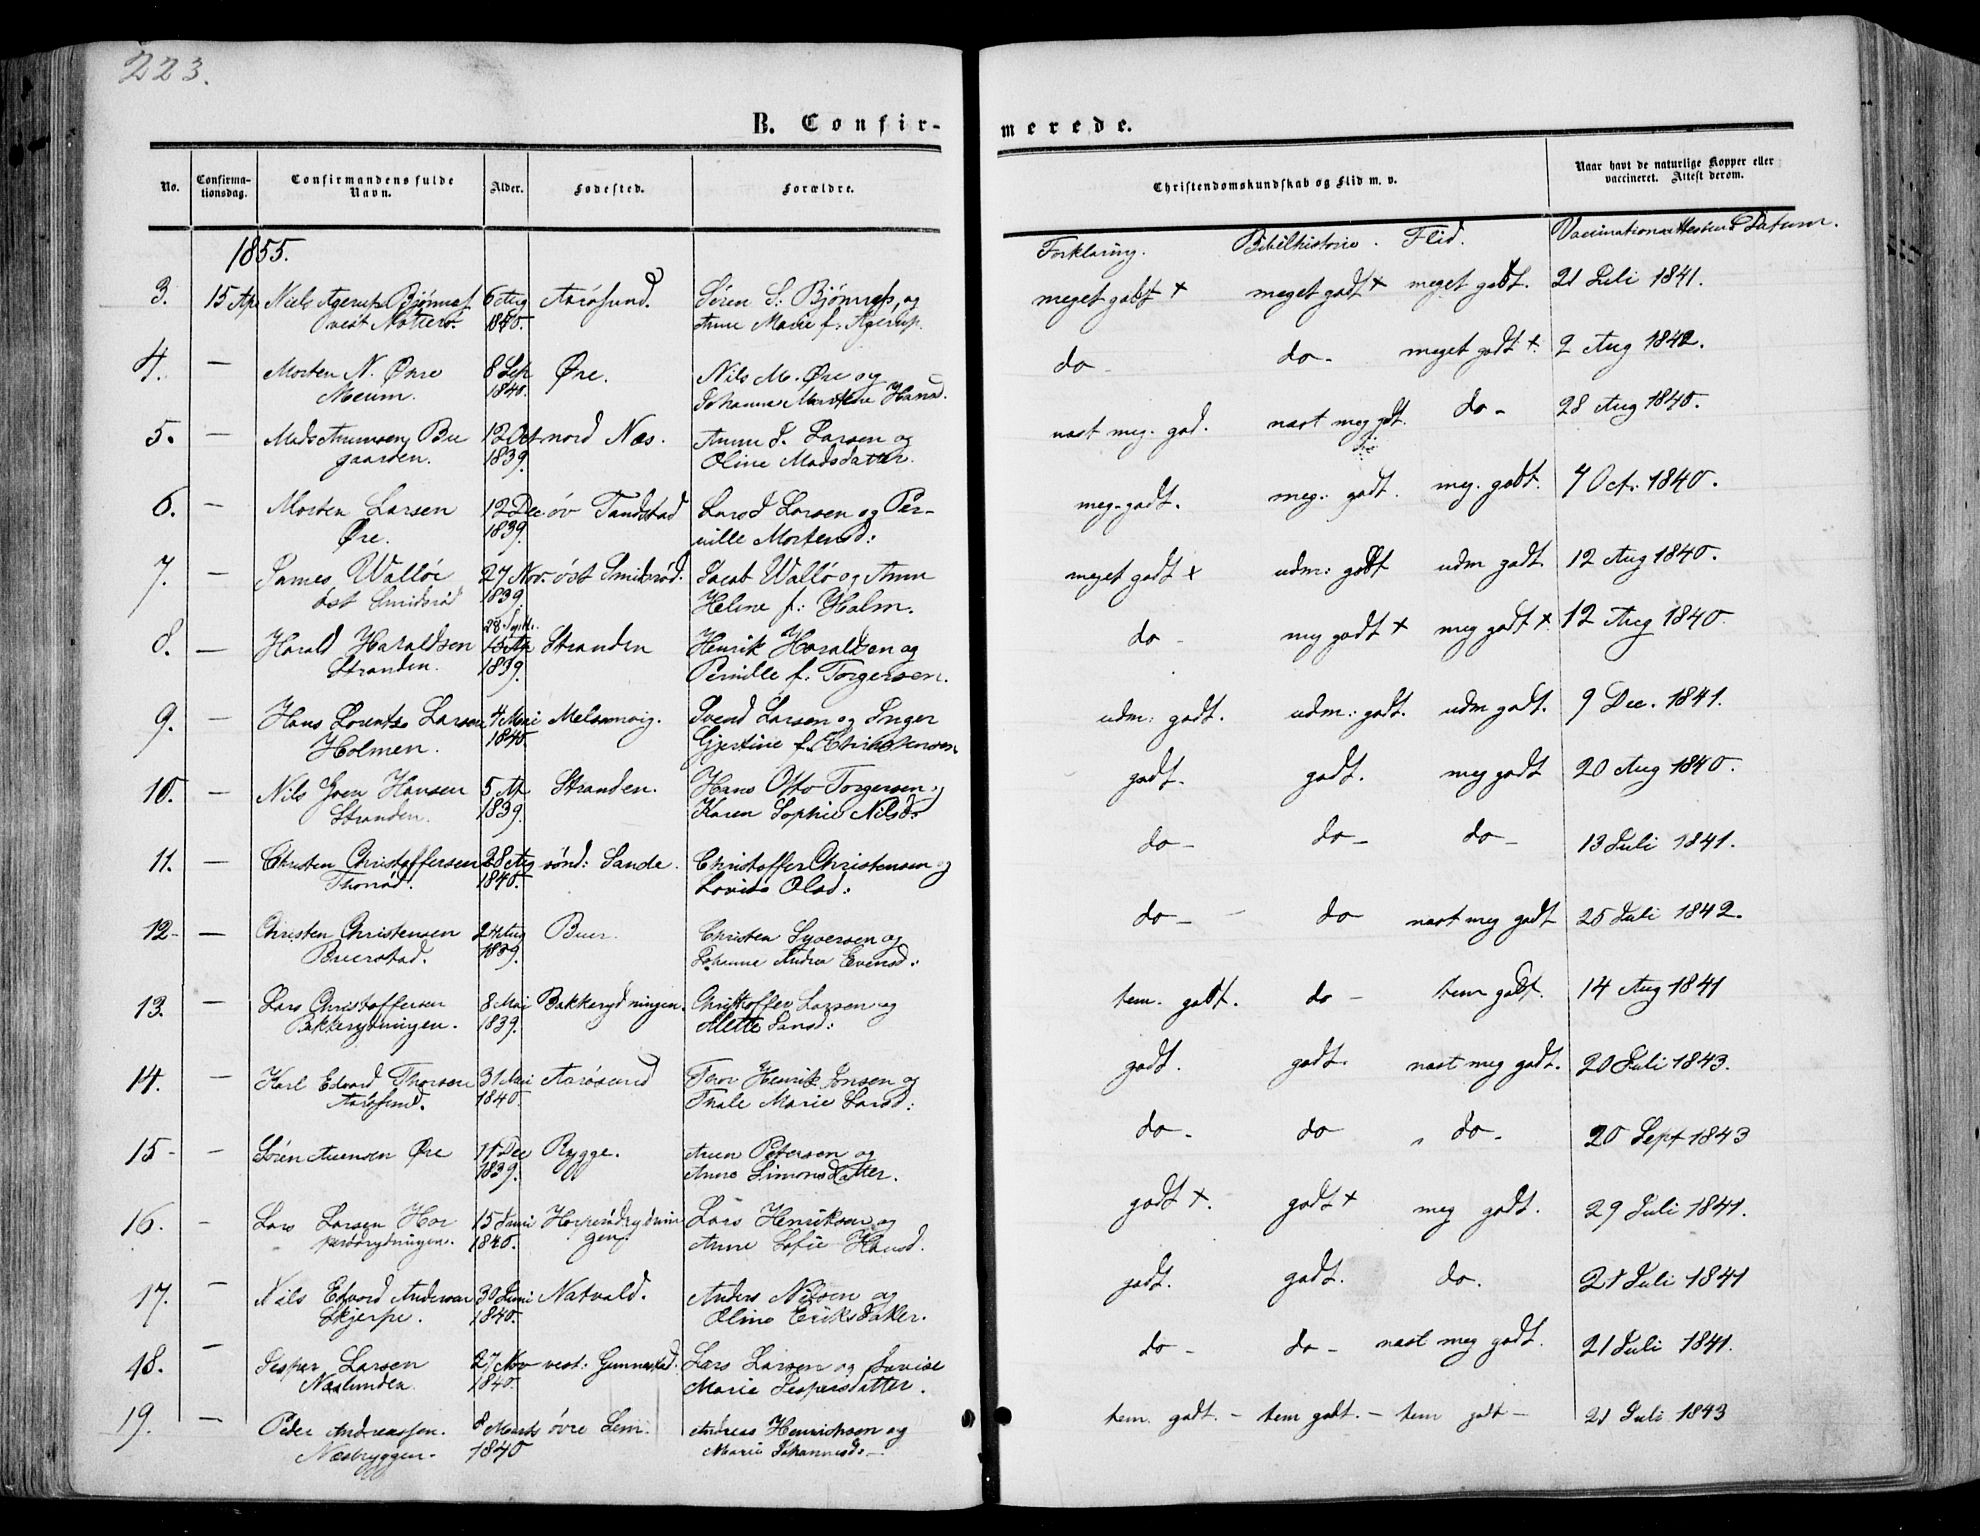 223.
B. Confir-
merede.
No.
Confirma-
tionsdag.
Confirmandens fulde
Navn.
Alder.
Fødested.
Forældre.
Christendomskundskab og Flid m. v.
Naar havt de naturlige Kopper eller
vaccineret. Attest derom.
1855.
Forklaring. Bibelhistorie. Flid. Datum.
3. 15 Apr Niels Agerup 6 Aug Aarøsund. Søren S. og meget godt + meget godt + meget godt. 21 Juli 1841.
vest 1840. Anne Marie f. Agerup.
4. — Morten N. Øre 8 Sept Øre. Nils M. Øre og do - do - meget godt +. 2 Aug 1842.
1840. Johanne
5. — Mads 12 Oct nord Næs. S. Larsen og nast meg. god. nast meg gdt. do - 28 Aug 1840.
gaarden. 1839. Oline Madsdatter.
6. — Morten Larsen 12 Dec øv Tandstad Lars J Larsen og Per- meg. godt. meg. godt. meg. godt. 7 Oct. 1840.
Øre. 1839. nille Mortensd:
7. — James Walløe 27 Nov. øst Smidsrød. Jacob Wallø og Anne meget godt + udm: godt udm godt 12 Aug 1840.
øst Smidsrød 1839 Helene f: Holm.
28. Sept.
8. — Harald Haraldsen Stranden Henrik Haraldsen og do - meg godt + meg godt +. 12 Aug 1840.
Stranden. 1839. Pernille f. Torgersen.
9. — Hans Lorentz Larsen 4 Melsomvig. Svend Larsen og Inger udm: godt. udm: godt. udm godt. 9 Dec. 1841.
Holmen. 1840. Gjertine f.
10. — Nils Hansen 5 Ap Stranden. Hans Otto Torgersen og godt. godt. meg godt 20 Aug 1840.
Stranden. 1839. Karen Sophie Nilsd:
11. — Christen Christoffersen 28 Aug sønd: Sande. Christoffer Christensen og do - do - do - 13 Juli 1841.
1840. Lovise Olsd:
12 - — Christen Christensen 24 Aug Buer. Christen Syversen og do - do nast meg godt 25 Juli 1842.
Buerstad. 1839. Johanne Andrea Evensd:
13. — Lars Christoffersen 8 Mai Bakkerydningen. Christoffer Larsen og tem. godt. do - tem godt. 14 Aug 1841
Bakkerydningen. 1839. Mette
14. — Karl Edvard Thorsen 31 Aarøsund Thor Henrik Jensen og godt. godt. nast meg godt. 20 Juli 1843.
Aarøsund. 1840. Thale Marie Larsd:
15 - — Søren Øre Dec Rygge. Petersen og do - do do - 20 Sept 1843
1839. Anne Simonsdatter.
16. - Lars Larsen Hor 15 Juni Lars Henriksen og godt +. godt + meg godt. 29 Juli 1841.
1840. gen. Anne Sofie Hansd.
17. — Nils Edvard Andersen 30 Juni Natvald. Anders Nilsen og godt. godt. do. 21 Juli 1841
Skjerpe. 1840. Oline Eriksdatter.
18. — Jesper Larsen 27 Nov vest: Gunnestad. Lars Larsen og Lovise do - do - nast meg godt. 21 Juli 1841.
Næslunden. 1840. Marie Jespersdatter.
19. — Peder Andreassen. 8 Marts øvre Andreas Henriksen og tem. godt. - tem godt. - tem godt - 21 Juli 1843
Næsbryggen. 1840 Marie Johannesd. -